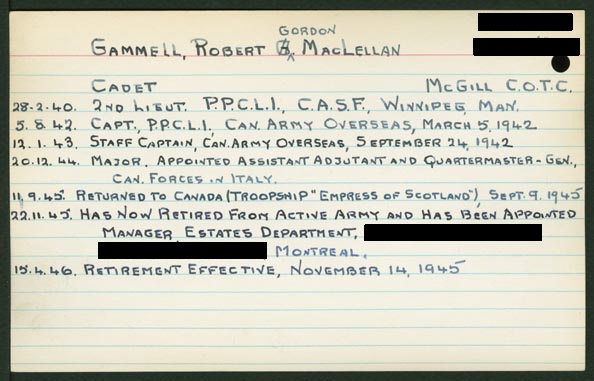 GORDON
GAMMELL, ROBERT G. MACLELLAN
CADET McGILL C.O.T.C.
28.2.40. 2ND LIEUT. P.P.C.L.I., C.A.S.F., WINNIPEG, MAN.
5.8.42. CAPT., P.P.C.L.I., CAN. ARMY OVERSEAS, MARCH 5, 1942
12.1.43. STAFF CAPTAIN, CAN. ARMY OVERSEAS, SEPTEMBER 24, 1942
20.12.44. MAJOR, APPOINTED ASSISTANT ADJUTANT AND QUARTERMASTER-GEN.,
CAN. FORCES IN ITALY.
11.9.45. RETURNED TO CANADA (TROOPSHIP "EMPRESS OF SCOTLAND"), SEPT. 9, 1945
22.11.45. HAS NOW RETIRED FROM ACTIVE ARMY AND HAS BEEN APPOINTED
MANAGER, ESTATES DEPARTMENT,
MONTREAL.
15.4.46. RETIREMENT EFFECTIVE, NOVEMBER 14, 1945